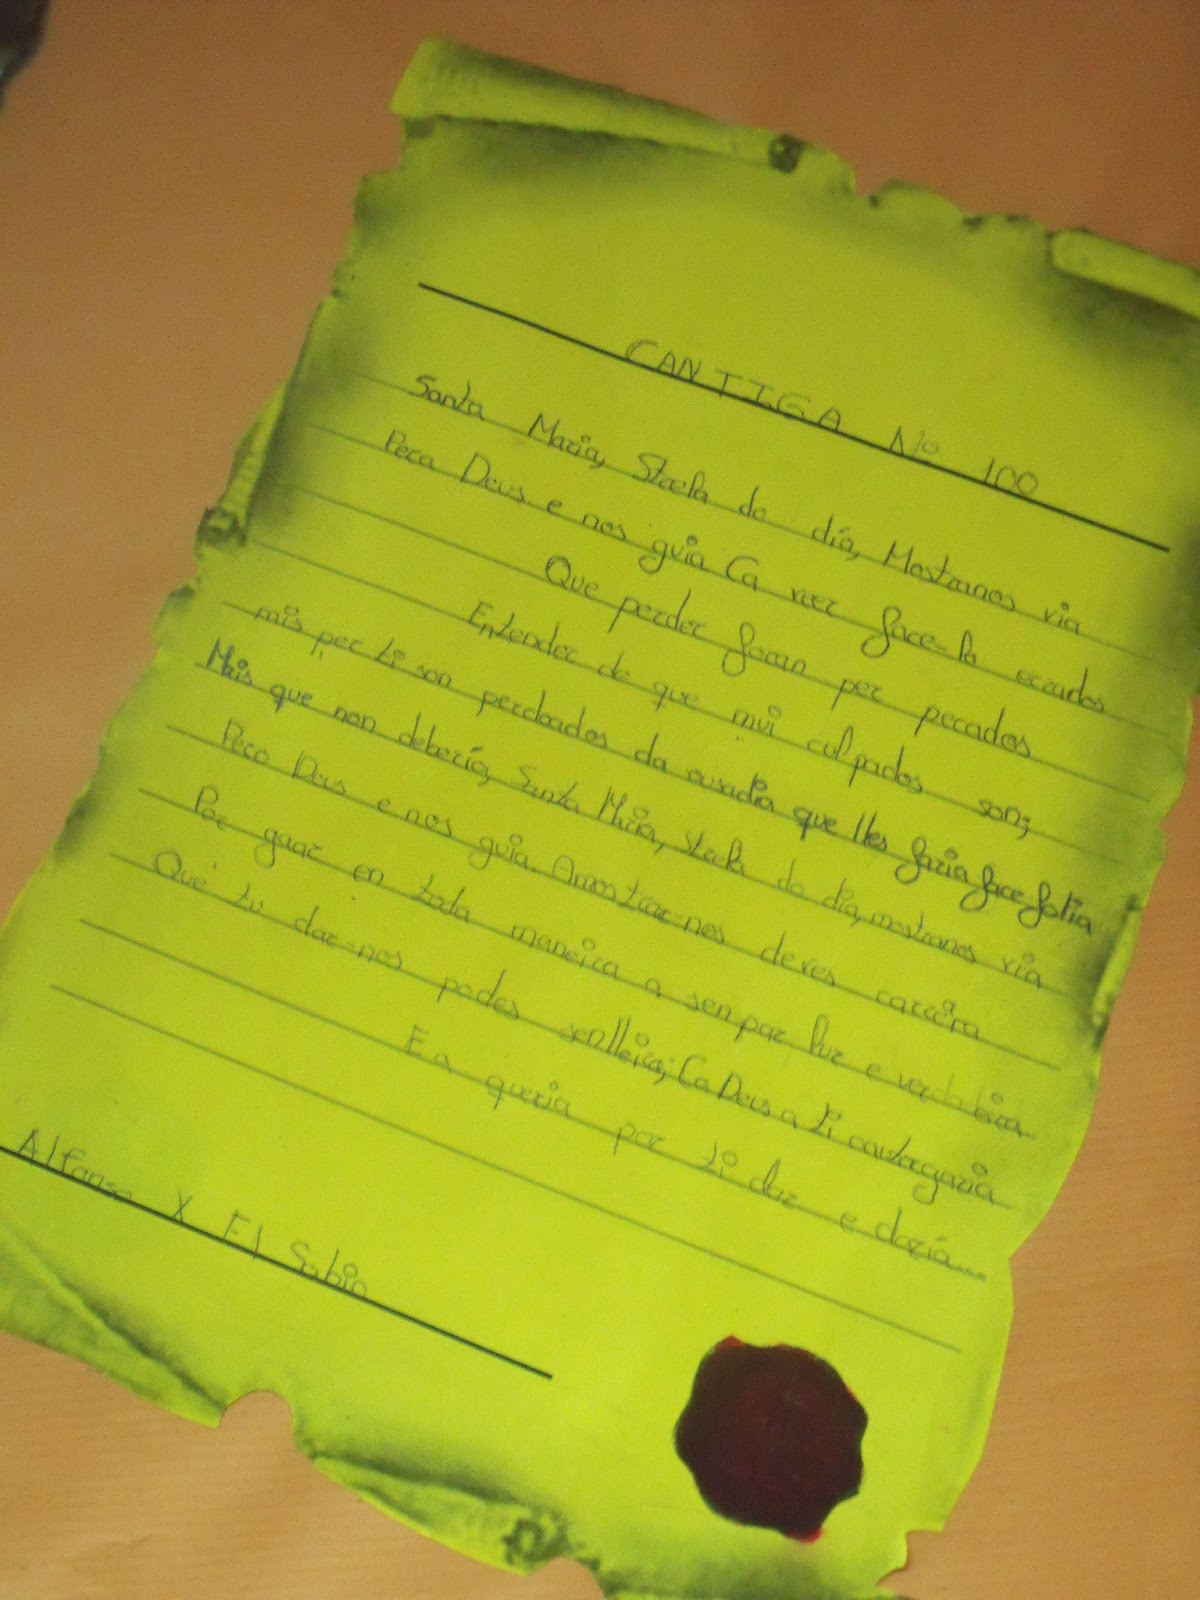 CANTIGA Nº 100
Santa Maria, Strela do día, Mostranos via
Pera Deus e nos guia Ca veer face-la errados
Que perder foran per pecados
Entender de que mui culpados son;
mis per ti son perdoados da ousadia que lles faria face folia
Mais que non debería, Santa Maria, strela do dia, mostranos via
Pera Deus e nos guia. Amostrar-nos deves carreira
Por gaar en toda maneira a sen par luz e verdadeira
Que tu dar-nos podes senlleira; Ca Deus a ti outorgaria
E a queria por ti dar e daría...
Alfonso X El Sabio